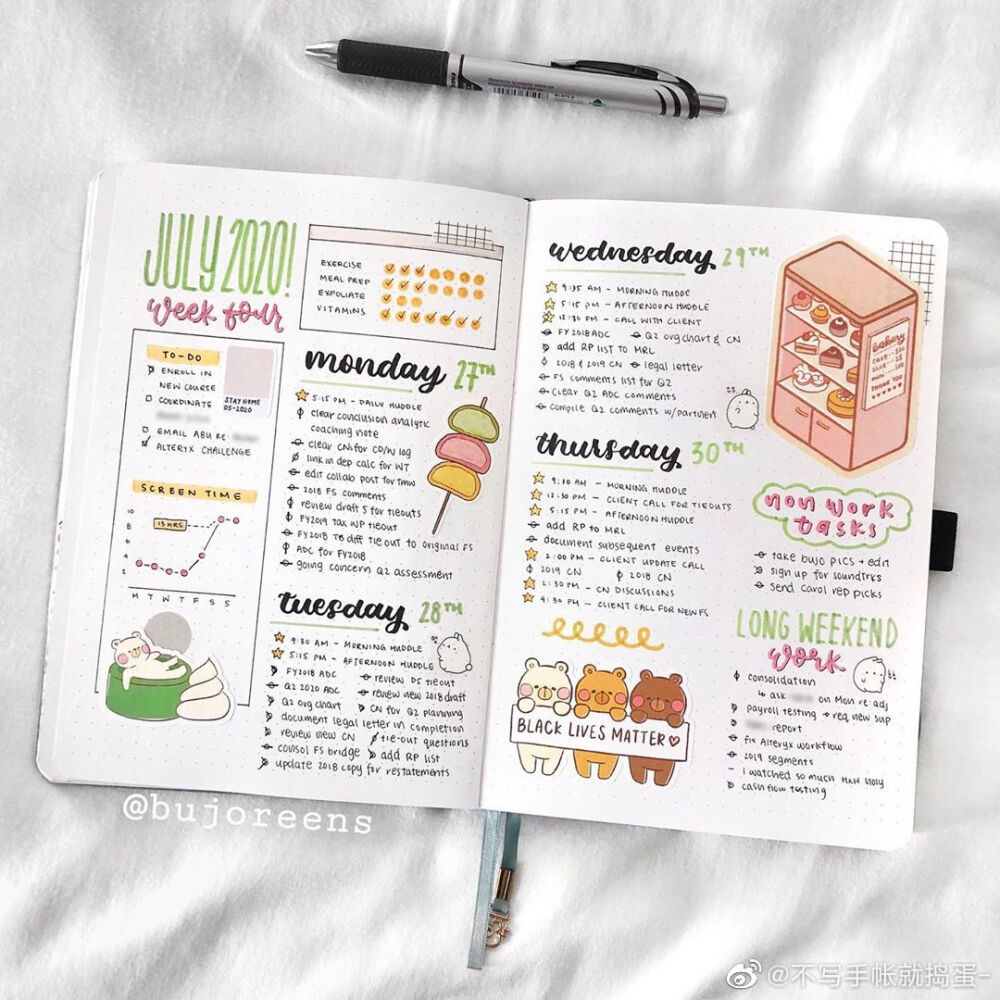 JULY 2020!
week four
EXERCISE
MEAL PREP
EXFOLIATE
VITAMINS
TO-DO
ENROLL IN
NEW COURSE
COORDINATE
EMAIL ABU RE:
ALTERYX CHALLENGE
STAY HOME
05-2020
SCREEN TIME
10
8
6
4
2
13 HRS
M T W T F S S
monday 27TH
5:15 PM - DAILY HUDDLE
clear conclusion analytic
coaching note
clear CN for CD/W log
link in dep calc for WT
edit collab post for tmw
2018 FS comments
review draft 5 for tieouts
FY2019 tax WP tieout
FY2018 TB diff tie out to original FS
ADC for FY2018
going concern Q2 assessment
tuesday 28TH
9:30 AM - MORNING HUDDLE
5:15 PM - AFTERNOON HUDDLE
FY2018 ADC
review D5 tieout
Q2 2020 ADC
review new 2018 draft
Q2 org chart
CN for Q2 planning
document legal letter in completion
review new CN
tie-out questions
consol FS bridge
add RP list
update 2018 copy for restatements
wednesday 29TH
9:35 AM - MORNING HUDDLE
5:15 PM - AFTERNOON HUDDLE
12:30 PM - CALL WITH CLIENT
FY2018 ADC
Q2 org chart & CN
add RP list to MRL
2018 & 2019 CN
legal letter
FS comments list for Q2
Clear Q2 ADC comments
Compile Q2 comments w/partner!
bakery
THANK YOU
thursday 30TH
9:30 AM - MORNING HUDDLE
12:30 PM - CLIENT CALL FOR TIEOUTS
5:15 PM - AFTERNOON HUDDLE
add RP to MRL
document subsequent events
2:00 PM - CLIENT UPDATE CALL
2019 CN
2018 CN
2:30 PM - CN DISCUSSIONS
4:30 PM - CLIENT CALL FOR NEW FS
BLACK LIVES MATTER
non work
tasks
take bujo pics → edit
sign up for soundtrks
send Carol rep picks
LONG WEEKEND
work
consolidation
↳ ask on Mon re: adj
payroll testing → req new sup
report
fix Alteryx workflow
2019 segments
- I watched so much HxH
cash flow testing
@bujoreens
@不写手帐就捣蛋-